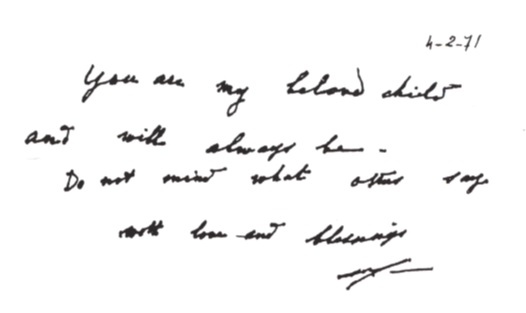 4-2-71
You are my beloved child
and will always be -
Do not mind what others say
with love and blessings